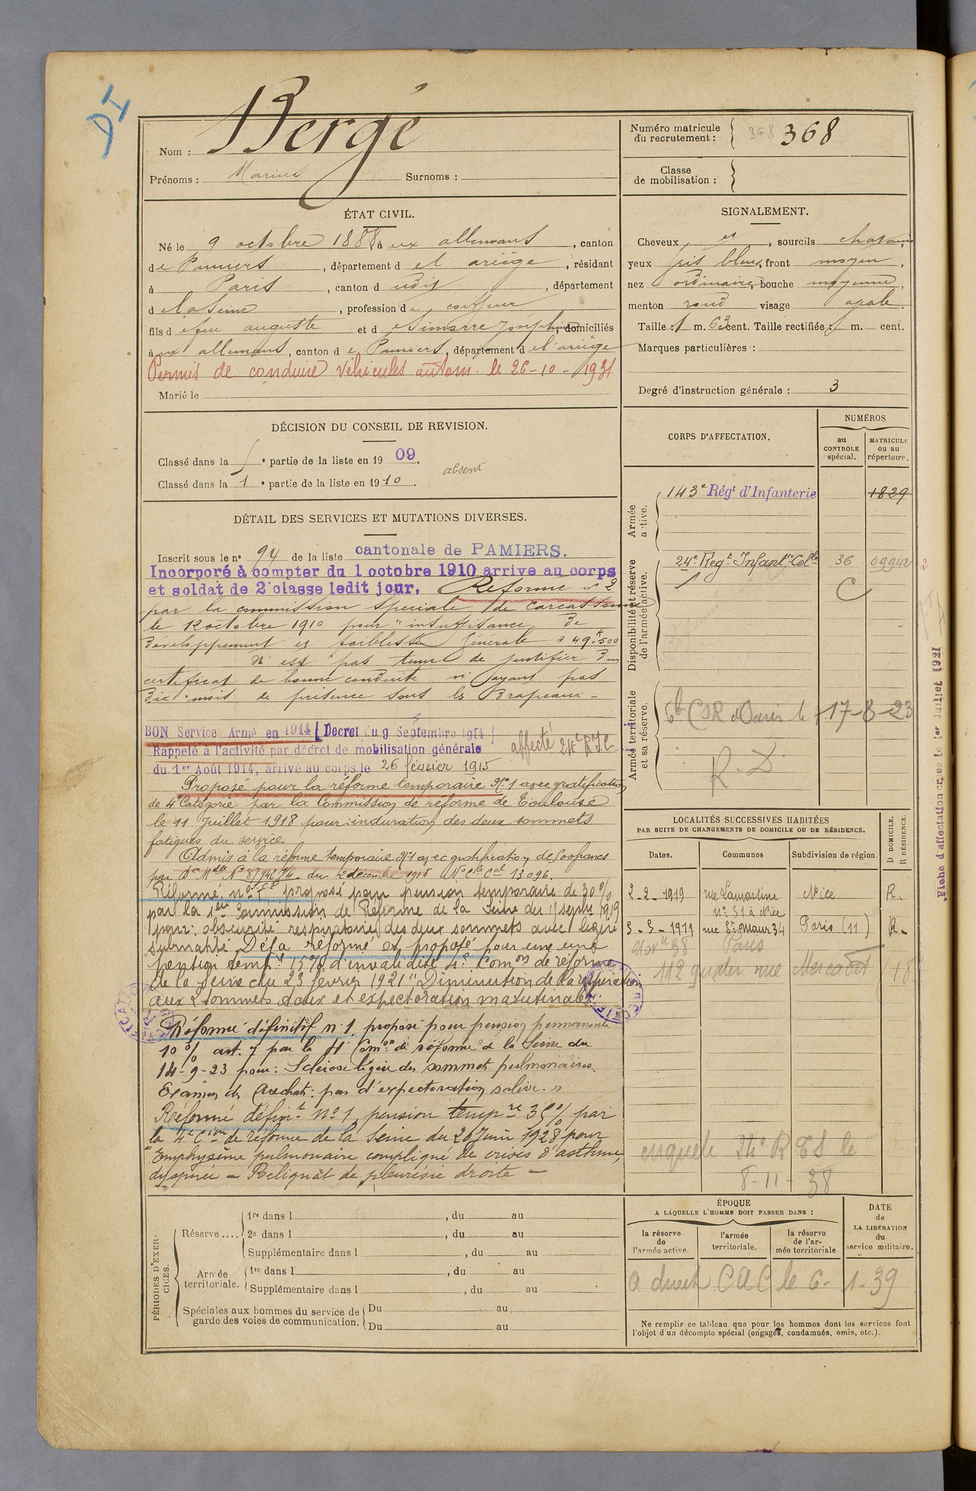 DI
Nom : Bergé
Prénoms : Marius Surnoms :
Numéro matricule du recrutement : 368 368
Classe de mobilisation :
ÉTAT CIVIL.
Né le 9 octobre 1888 à aux allemans, canton
de Pamiers, département d el ariège, résidant
à Paris, canton d udit, département
d e la Seine, profession de coiffeur
fils de feu auguste et d domiciliés
à aux allemans, canton d e Pamiers, département d e l'ariège
Permis de conduire véhicules autom. le 26-10-1931
Marié le
SIGNALEMENT.
Cheveux et, sourcils chatains
yeux gris bleu, front moyen,
nez ordinaire, bouche moyenne,
menton rond visage ovale.
Taille : 1 m. 63 cent. Taille rectifiée : m. cent.
Marques particulières :
Degré d'instruction générale : 3
DÉCISION DU CONSEIL DE REVISION.
Classé dans la e partie de la liste en 1909.
absent
Classé dans la 1 e partie de la liste en 1910.
DÉTAIL DES SERVICES ET MUTATIONS DIVERSES.
Inscrit sous le n° 94 de la liste cantonale de PAMIERS.
Incorporé à compter du 1 octobre 1910 arrive au corps
et soldat de 2e classe ledit jour. Réformé n° 2
par la commission spéciale de Carcassonne
le 12 octobre 1910 pour "insuffisance de
développement et faiblesse générale" 49k500
N'est pas tenu de justifier d'un
certificat de bonne conduite n'ayant pas
dix mois de présence sous les Drapeaux -
BON Service Armé en 1914 (Décret du 9 Septembre 1914)
Rappelé à l'activité par décret de mobilisation générale
du 1er Août 1914, arrivé au corps le 26 février 1915
affecté 24e R.I.C.
Proposé pour la réforme temporaire N° 1 avec gratification
de 4e Catégorie par la Commission de réforme de Toulouse
le 11 Juillet 1918 pour: induration des deux sommets
fatigues du service.
Admis à la réforme temporaire N° 1 avec gratification de francs
par du décembre 1918 13096.
Réformé n° 1 proposé pour pension temporaire de 30%
par la 1ère Commission de Réforme de la Seine du 1919
pour: obscurité respiratoire des deux sommets avec légère
submatité Déjà réformé et proposé pour une
pension tempre 15% d'invalidité 4e Comon de réforme
de la Seine du 23 février 1921 "Diminution de la respiration
aux 2 sommets toux et expectoration matutinale."
Réforme définitif n° 1 proposé pour pension permanente
10% art. 7 par la Comon de réforme de la Seine du
14-9-23 pour: Sclérose légère des sommets pulmonaires.
Examen des Crachats: pas d'expectoration salive. "
Réformé définit N° 1, pension tempre 35% par
la 4e Cion de réforme de la Seine du 20 Juin 1928 pour
"emphysème pulmonaire compliqué de crises d'asthme,
dyspnée - Reliquat de pleurésie droite -
CORPS D'AFFECTATION.
NUMÉROS
au CONTROLE spécial.
MATRICULE ou au répertoire.
Armée active.
143e Régt d'Infanterie 1829
Disponibilité et réserve de l'armée active.
24e Regt Infanie Colle 36 09942
C
Armée territoriale et sa réserve.
Paris le 17-8-23
R. D
LOCALITÉS SUCCESSIVES HABITÉES
PAR SUITE DE CHANGEMENTS DE DOMICILE OU DE RÉSIDENCE.
D DOMICILE.
R RÉSIDENCE.
Dates. Communes Subdivision de région.
2-2-1919 rue Lamartine n° 51 à Nice Nice R.
3-3-1919 rue St Maur 34 Paris (11) R.
Paris
112 rue Marcadet 18
enquete 24e R le
8-11-38
PÉRIODES D'EXERCICES.
Réserve....
1re dans l , du au
2e dans l , du au
Supplémentaire dans l , du au
Armée territoriale.
1re dans l , du au
Supplémentaire dans l , du au
Spéciales aux hommes du service de garde des voies de communication.
Du au
Du au
ÉPOQUE
A LAQUELLE L'HOMME DOIT PASSER DANS :
la réserve de l'armée active.
l'armée territoriale.
la réserve de l'armée territoriale
DATE de LA LIBÉRATION du service militaire.
CAC le 6-1-39
Ne remplir ce tableau que pour les hommes dont les services font
l'objet d'un décompte spécial (engagés, condamnés, omis, etc.).